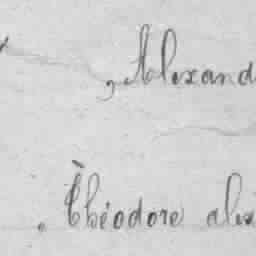 , Alexand
. Théodore alex